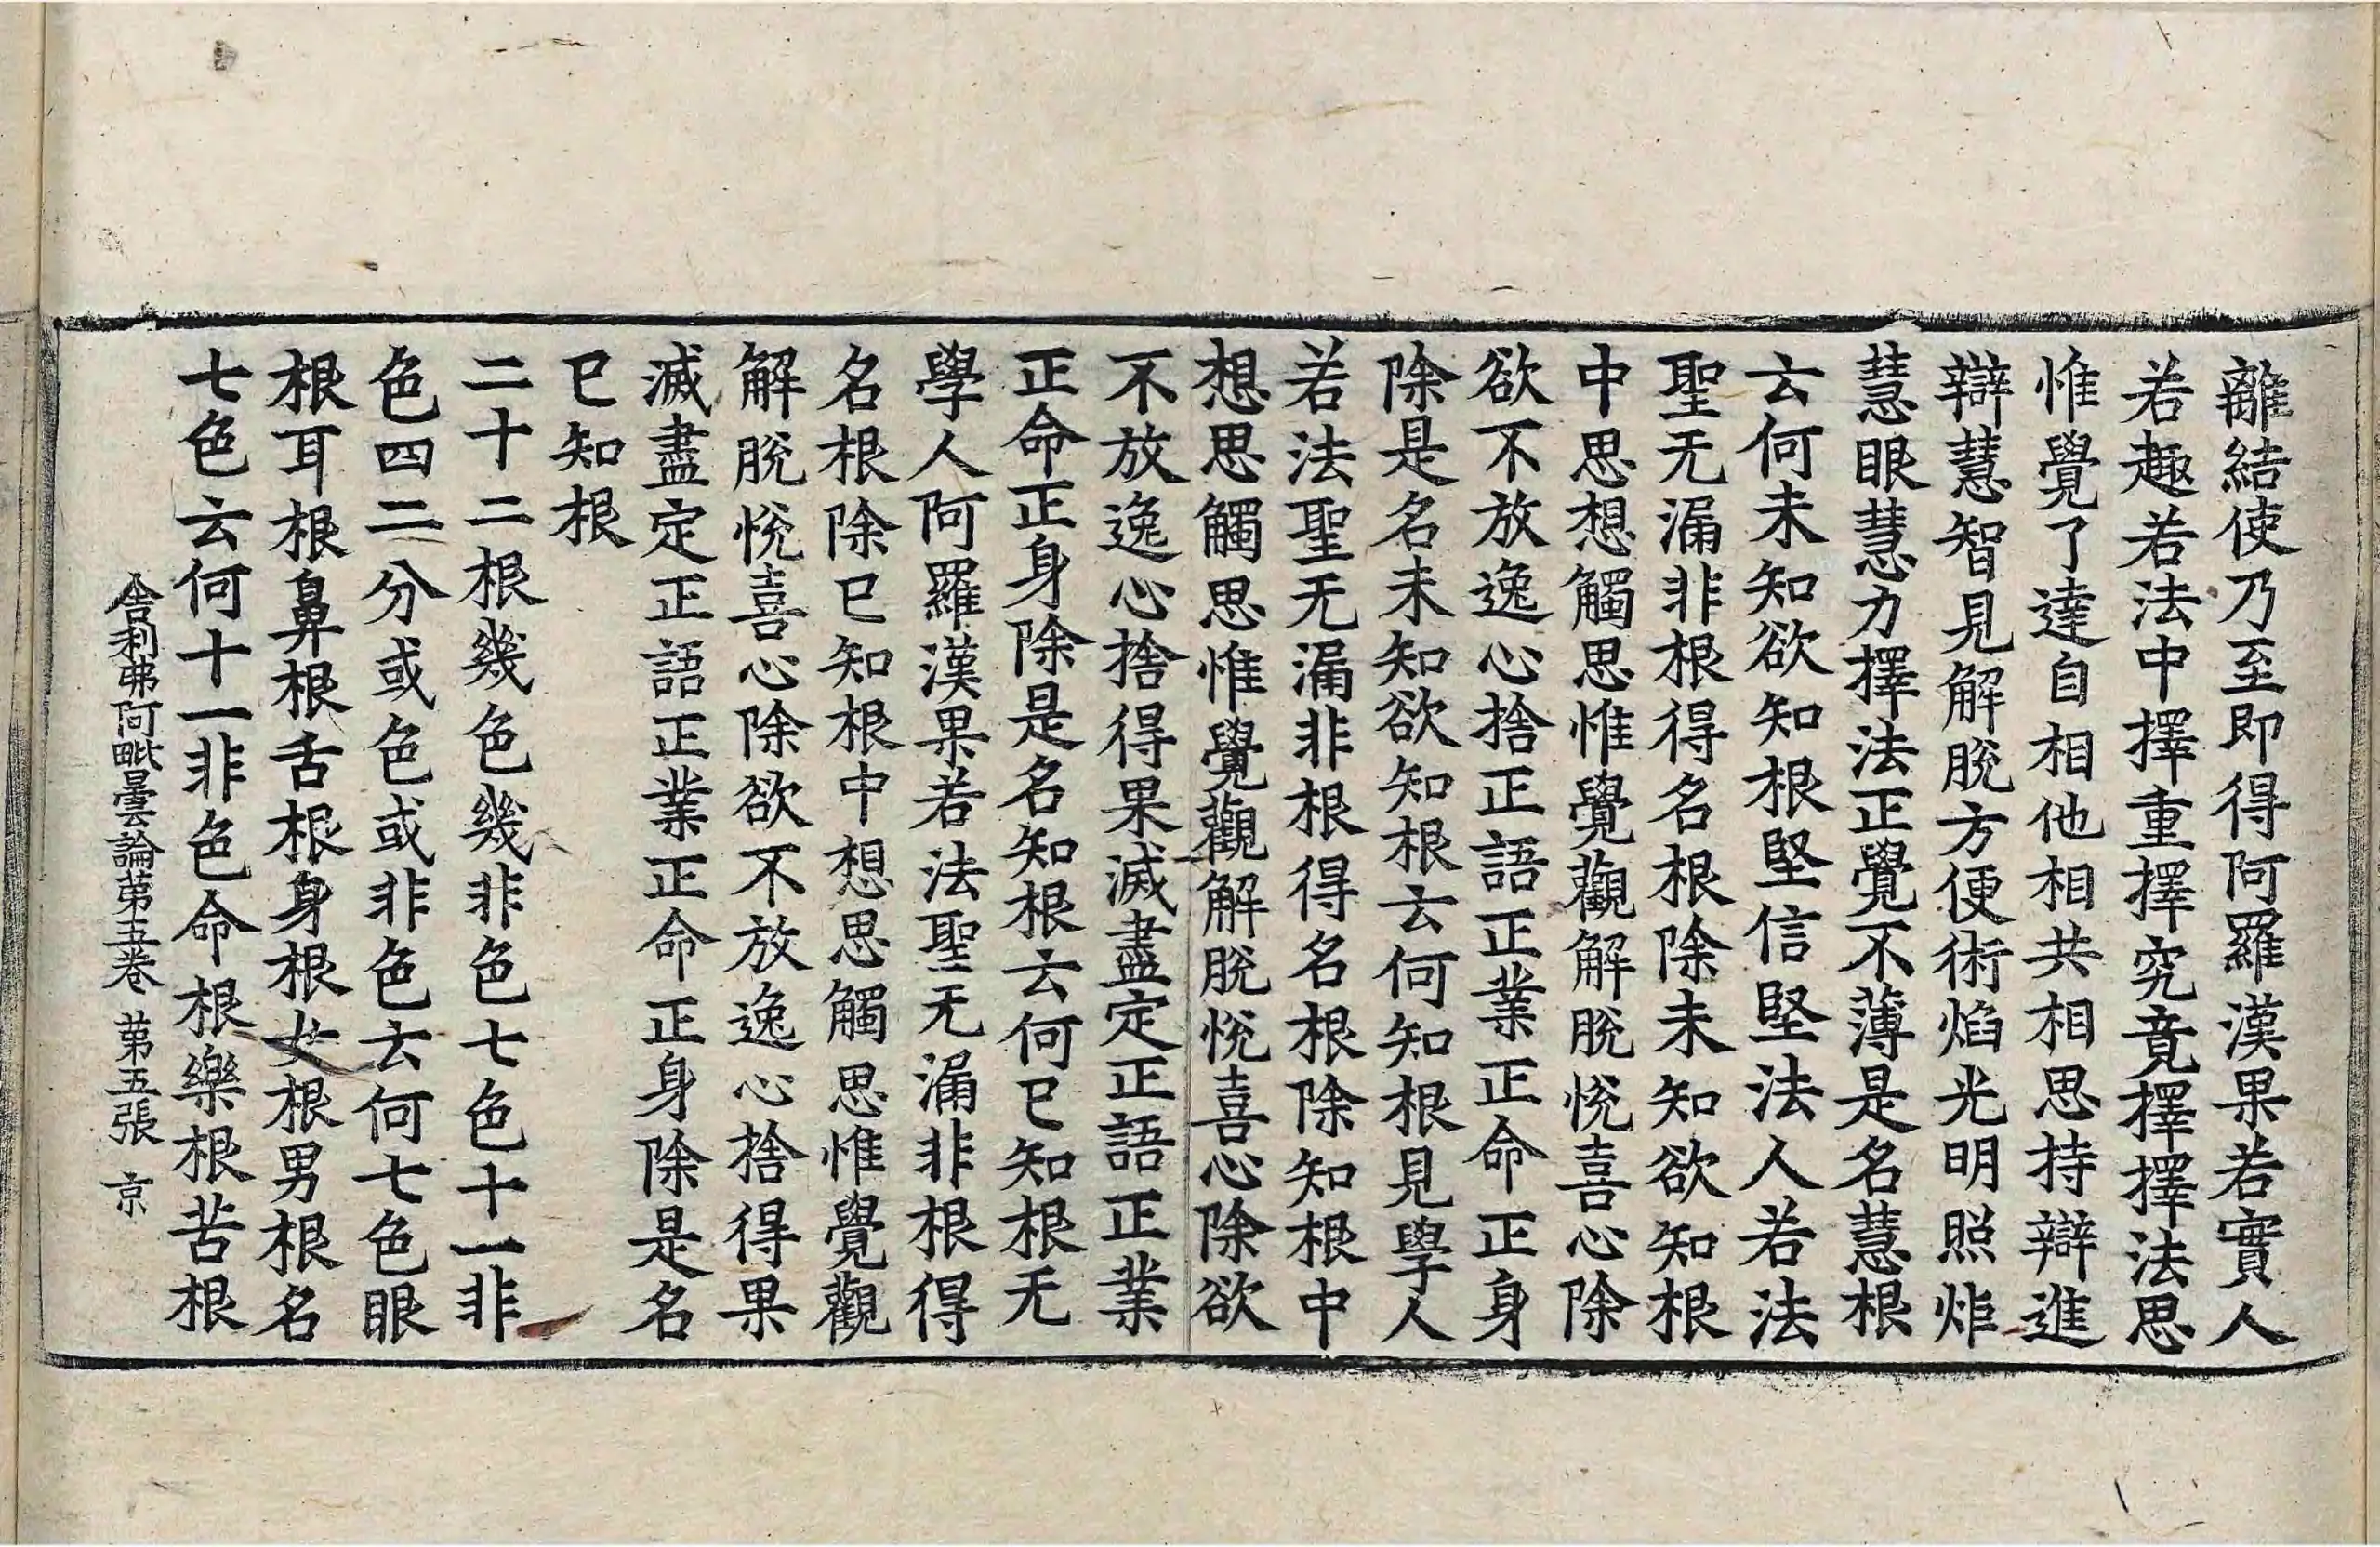 離結使乃至即得阿羅漢果若實人
若趣若法中擇重擇究竟擇擇法思
惟覺了達自相他相共相思持辯進
辯慧智見解脫方便術焰光明照炸
慧眼慧力擇法正覺不薄是名慧根
云何未知欲知根堅信堅法人若法
聖无漏非根得名根除未知欲知根
中思想觸思惟覺觀解脫悅喜心除
欲不放逸心捨正語正業正命正身
除是名未知欲知根云何知根見學人
若法聖无漏非根得名根除知根中
想思觸思惟覺觀解脫悅喜心除欲
不放逸心捨得果滅盡定正語正業
正命正身除是名知根云何已知根无
學人阿羅漢果若法聖无漏非根得
名根除已知根中想思觸思惟覺觀
解脫悅喜心除欲不放逸心捨得果
滅盡定正語正業正命正身除是名
已知根
二十二根幾色幾非色七色十一非
色四二分或色或非色云何七色眼
根耳根鼻根舌根身根女根男根名
七色云何十一非色命根樂根苦根
舍利弗阿毗曇論第五卷 第五張 京